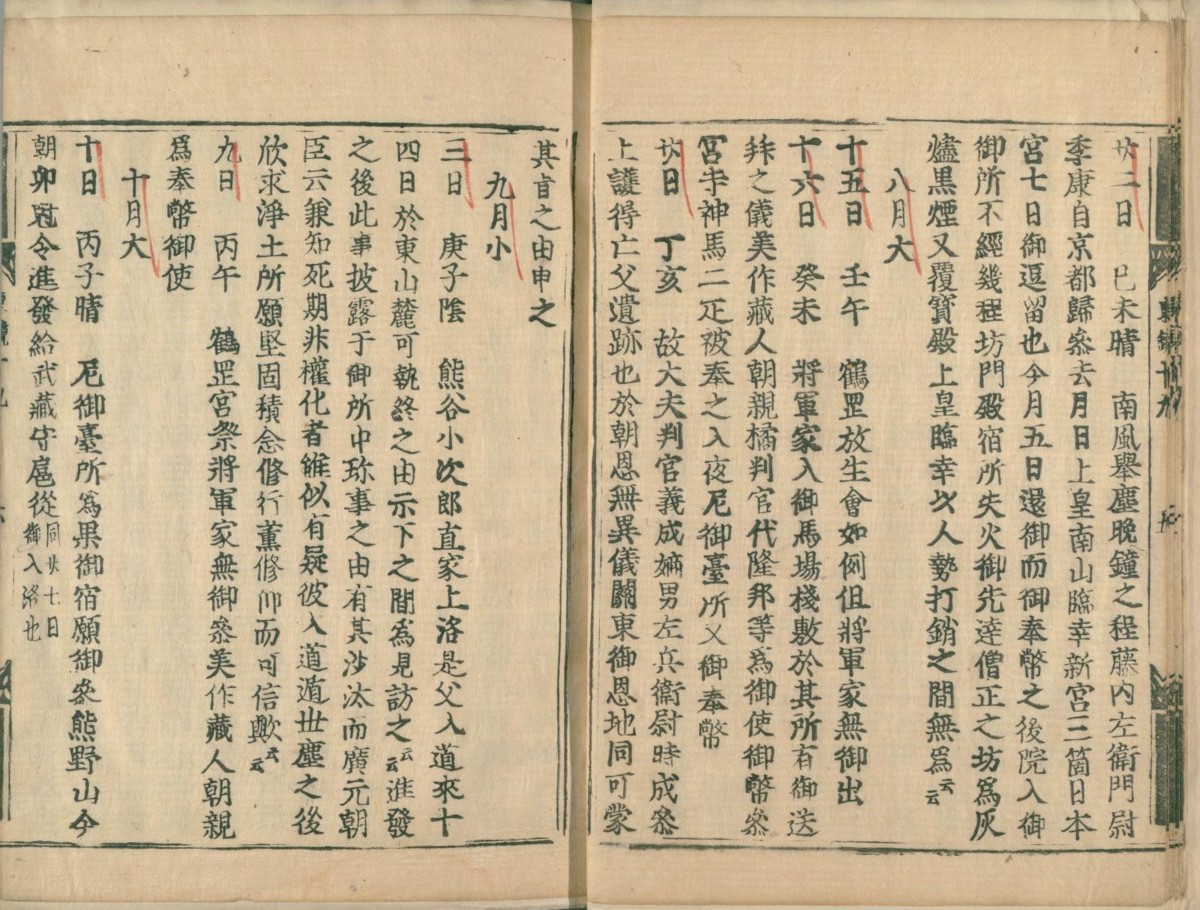 廿二日　己未晴　南風舉塵晩鐘之程藤内左衛門尉
季康自京都歸參去月日上皇南山臨幸新宮三箇日本
宮七日御逗留也今月五日還御而御奉幣之後院入御
御所不經幾程坊門殿宿所失火御先達僧正之坊爲灰
爐黒煙又覆寳殿上皇臨幸以人勢打銷之間無爲云云
八月大
十五日　壬午　鶴岡放生會如例但將軍家無御出
十六日　癸未　將軍家入御馬場棧敷於其所有御送
拜之儀美作藏人朝親橘判官代隆邦等爲御使御幣參
宮寺神馬二疋被奉之入夜尼御臺所又御奉幣
廿日　丁亥　故大夫判官義成嫡男左兵衛尉時成參
上護得亡父遺跡也於朝恩無異儀關東御恩地同可蒙
其旨之由申之
九月小
三日　庚子陰　熊谷小次郎直家上洛是父入道來十
四日於東山麓可執終之由示下之間爲見訪之云云進發
之後此事披露于御所中珎事之由有其沙汰而廣元朝
臣云兼知死期非權化者雖似有疑彼入道遁世塵之後
欣求淨土所願堅固積念修行薫修仰而可信歟云云
九日　丙午　鶴岡宮祭將軍家無御參美作藏人朝親
爲奉幣御使
十月大
十日　丙子晴　尼御臺所爲果御宿願御參熊野山今
朝卯尅令進發給武藏守扈從同廿七日御入洛也
吾妻鏡十九
五